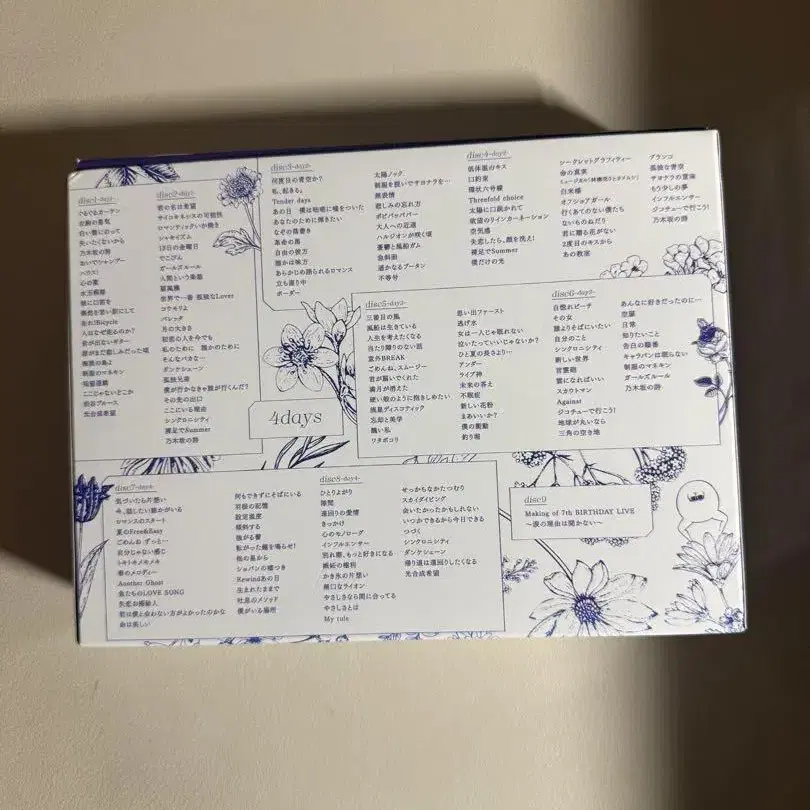 disc1-day1-
ぐるぐるカーテン
左胸の勇気
白い雲にのって
失いたくないから
乃木坂の詩
おいでシャンプー
ハウス!
心の薬
水玉模様
狼に口笛を
偶然を言い訳にして
走れ!Bicycle
人はなぜ走るのか?
音が出ないギター
誰かまだ悲しみだった頃
海流の島よ
制服のマネキン
指望遠鏡
ここじゃないどこか
渋谷ブルース
光合成希望
disc2-day1-
君の名は希望
サイコキネシスの可能性
ロマンティックいか焼き
シャキイズム
13日の金曜日
でこぴん
ガールズルール
人間という楽器
扇風機
世界で一番 孤独なLover
コウモリよ
バレッタ
月の大きさ
初恋の人を今でも
私のために 誰かのために
そんなバカな…
ダンケシェーン
孤独兄弟
僕が行かなきゃ誰が行くんだ?
その先の出口
ここにいる理由
シンクロニシティ
裸足でSummer
乃木坂の詩
disc3-day2-
何度目の青空か?
私、起きる。
Tender days
あの日 僕は咄嗟に嘘をついた
あなたのために弾きたい
なぞの落書き
革命の馬
自由の彼方
誰かは味方
あらかじめ語られるロマンス
立ち直り中
ボーダー
太陽ノック
制服を脱いでサヨナラを…
無表情
悲しみの忘れ方
ポピパッパパー
大人への近道
ハルジオンが咲く頃
憂鬱と風船ガム
急斜面
遥かなるブータン
不等号
disc4-day2-
低体温のキス
口約束
環状六号線
Threefold choice
太陽に口説かれて
欲望のリインカーネーション
空気感
失恋したら、顔を洗え!
裸足でSummer
僕だけの光
シークレットグラフィティー
命の真実
ミュージカル「林檎売りとカメムシ」
白米様
オフショアガール
行くあてのない僕たち
ないものねだり
君に贈る花がない
2度目のキスから
あの教室
ブランコ
孤独な青空
サヨナラの意味
もう少しの夢
インフルエンサー
ジコチューで行こう!
乃木坂の詩
4days
disc5-day3-
三番目の風
風船は生きている
人生を考えたくなる
当たり障りのない話
意外BREAK
ごめんね、スムージー
君が扇いでくれた
満月が消えた
硬い殻のように抱きしめたい
流星ディスコティック
忘却と美学
醜い私
ワタボコリ
思い出ファースト
逃げ水
女は一人じゃ眠れない
泣いたっていいじゃないか?
ひと夏の長さより…
アンダー
ライブ神
未来の答え
不眠症
新しい花粉
まあいいか?
僕の衝動
釣り堀
disc6-day3-
自惚れビーチ
その女
誰よりそばにいたい
自分のこと
シンクロニシティ
新しい世界
言霊砲
雲になればいい
スカウトマン
Against
ジコチューで行こう!
地球が丸いなら
三角の空き地
あんなに好きだったのに…
空扉
日常
知りたいこと
告白の順番
キャラバンは眠らない
制服のマネキン
ガールズルール
乃木坂の詩
disc7-day4-
気づいたら片想い
今、話したい誰かがいる
ロマンスのスタート
夏のFree&Easy
ごめんね ずっと…
自分じゃない感じ
トキトキメキメキ
春のメロディー
Another Ghost
魚たちのLOVE SONG
失恋お掃除人
君は僕と会わない方がよかったのかな
命は美しい
何もできずにそばにいる
羽根の記憶
設定温度
傾斜する
強がる蕾
転がった鐘を鳴らせ!
他の星から
ショパンの嘘つき
Rewindあの日
生まれたままで
吐息のメソッド
僕がいる場所
disc8-day4-
ひとりよがり
隙間
遠回りの愛情
きっかけ
心のモノローグ
インフルエンサー
別れ際、もっと好きになる
嫉妬の権利
かき氷の片想い
無口なライオン
やさしさなら間に合ってる
やさしさとは
My rule
せっかちなかたつむり
スカイダイビング
会いたかったかもしれない
いつかできるから今日できる
つづく
シンクロニシティ
ダンケシェーン
帰り道は遠回りしたくなる
光合成希望
disc9
Making of 7th BIRTHDAY LIVE
〜涙の理由は聞かない〜